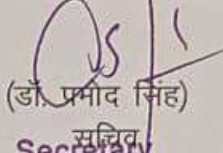 (डॉ. प्रमोद सिंह)
सचिव
Secretary